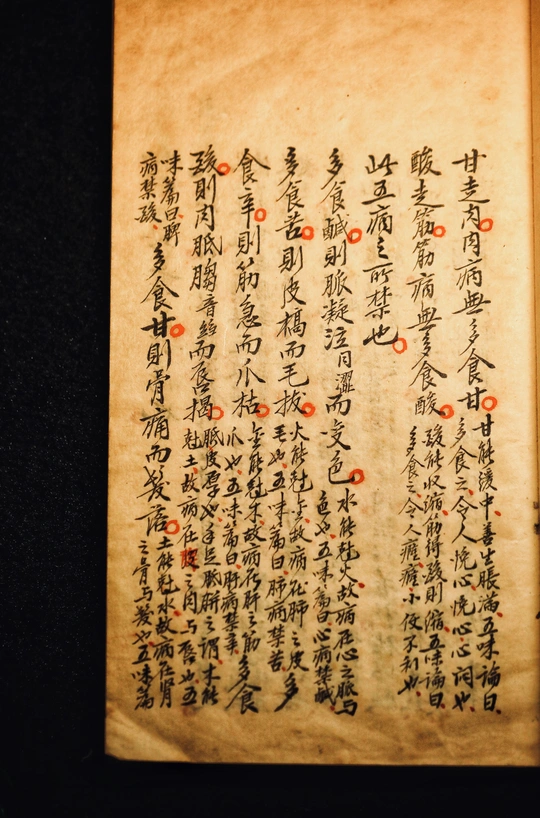 甘走肉肉病無多食甘
甘能緩中善生脹滿五味論曰
多食之令人悗心悗心心悶也
酸走筋筋病無多食酸
酸能收縮筋得酸則縮五味論曰
多食之令人癃癃小便不利也
此五病之所禁也
多食鹹則脈凝泣同澀而变色
水能尅火故病在心之脈与
色也五味篇曰心病禁鹹
多食苦則皮槁而毛拔
火能尅金故病在肺之皮
毛也五味篇曰肺病禁苦多
食辛則筋急而爪枯
金能尅木故病在肝之筋
爪也五味篇曰肝病禁辛多食
酸則肉胝䐢音縐而唇揭
胝皮厚也手足胝胼之謂木能
尅土故病在脾之肉与唇也五
味篇曰脾
病禁酸
多食甘則骨痛而髮落
土能尅水故病在腎
之骨与髮也五味篇